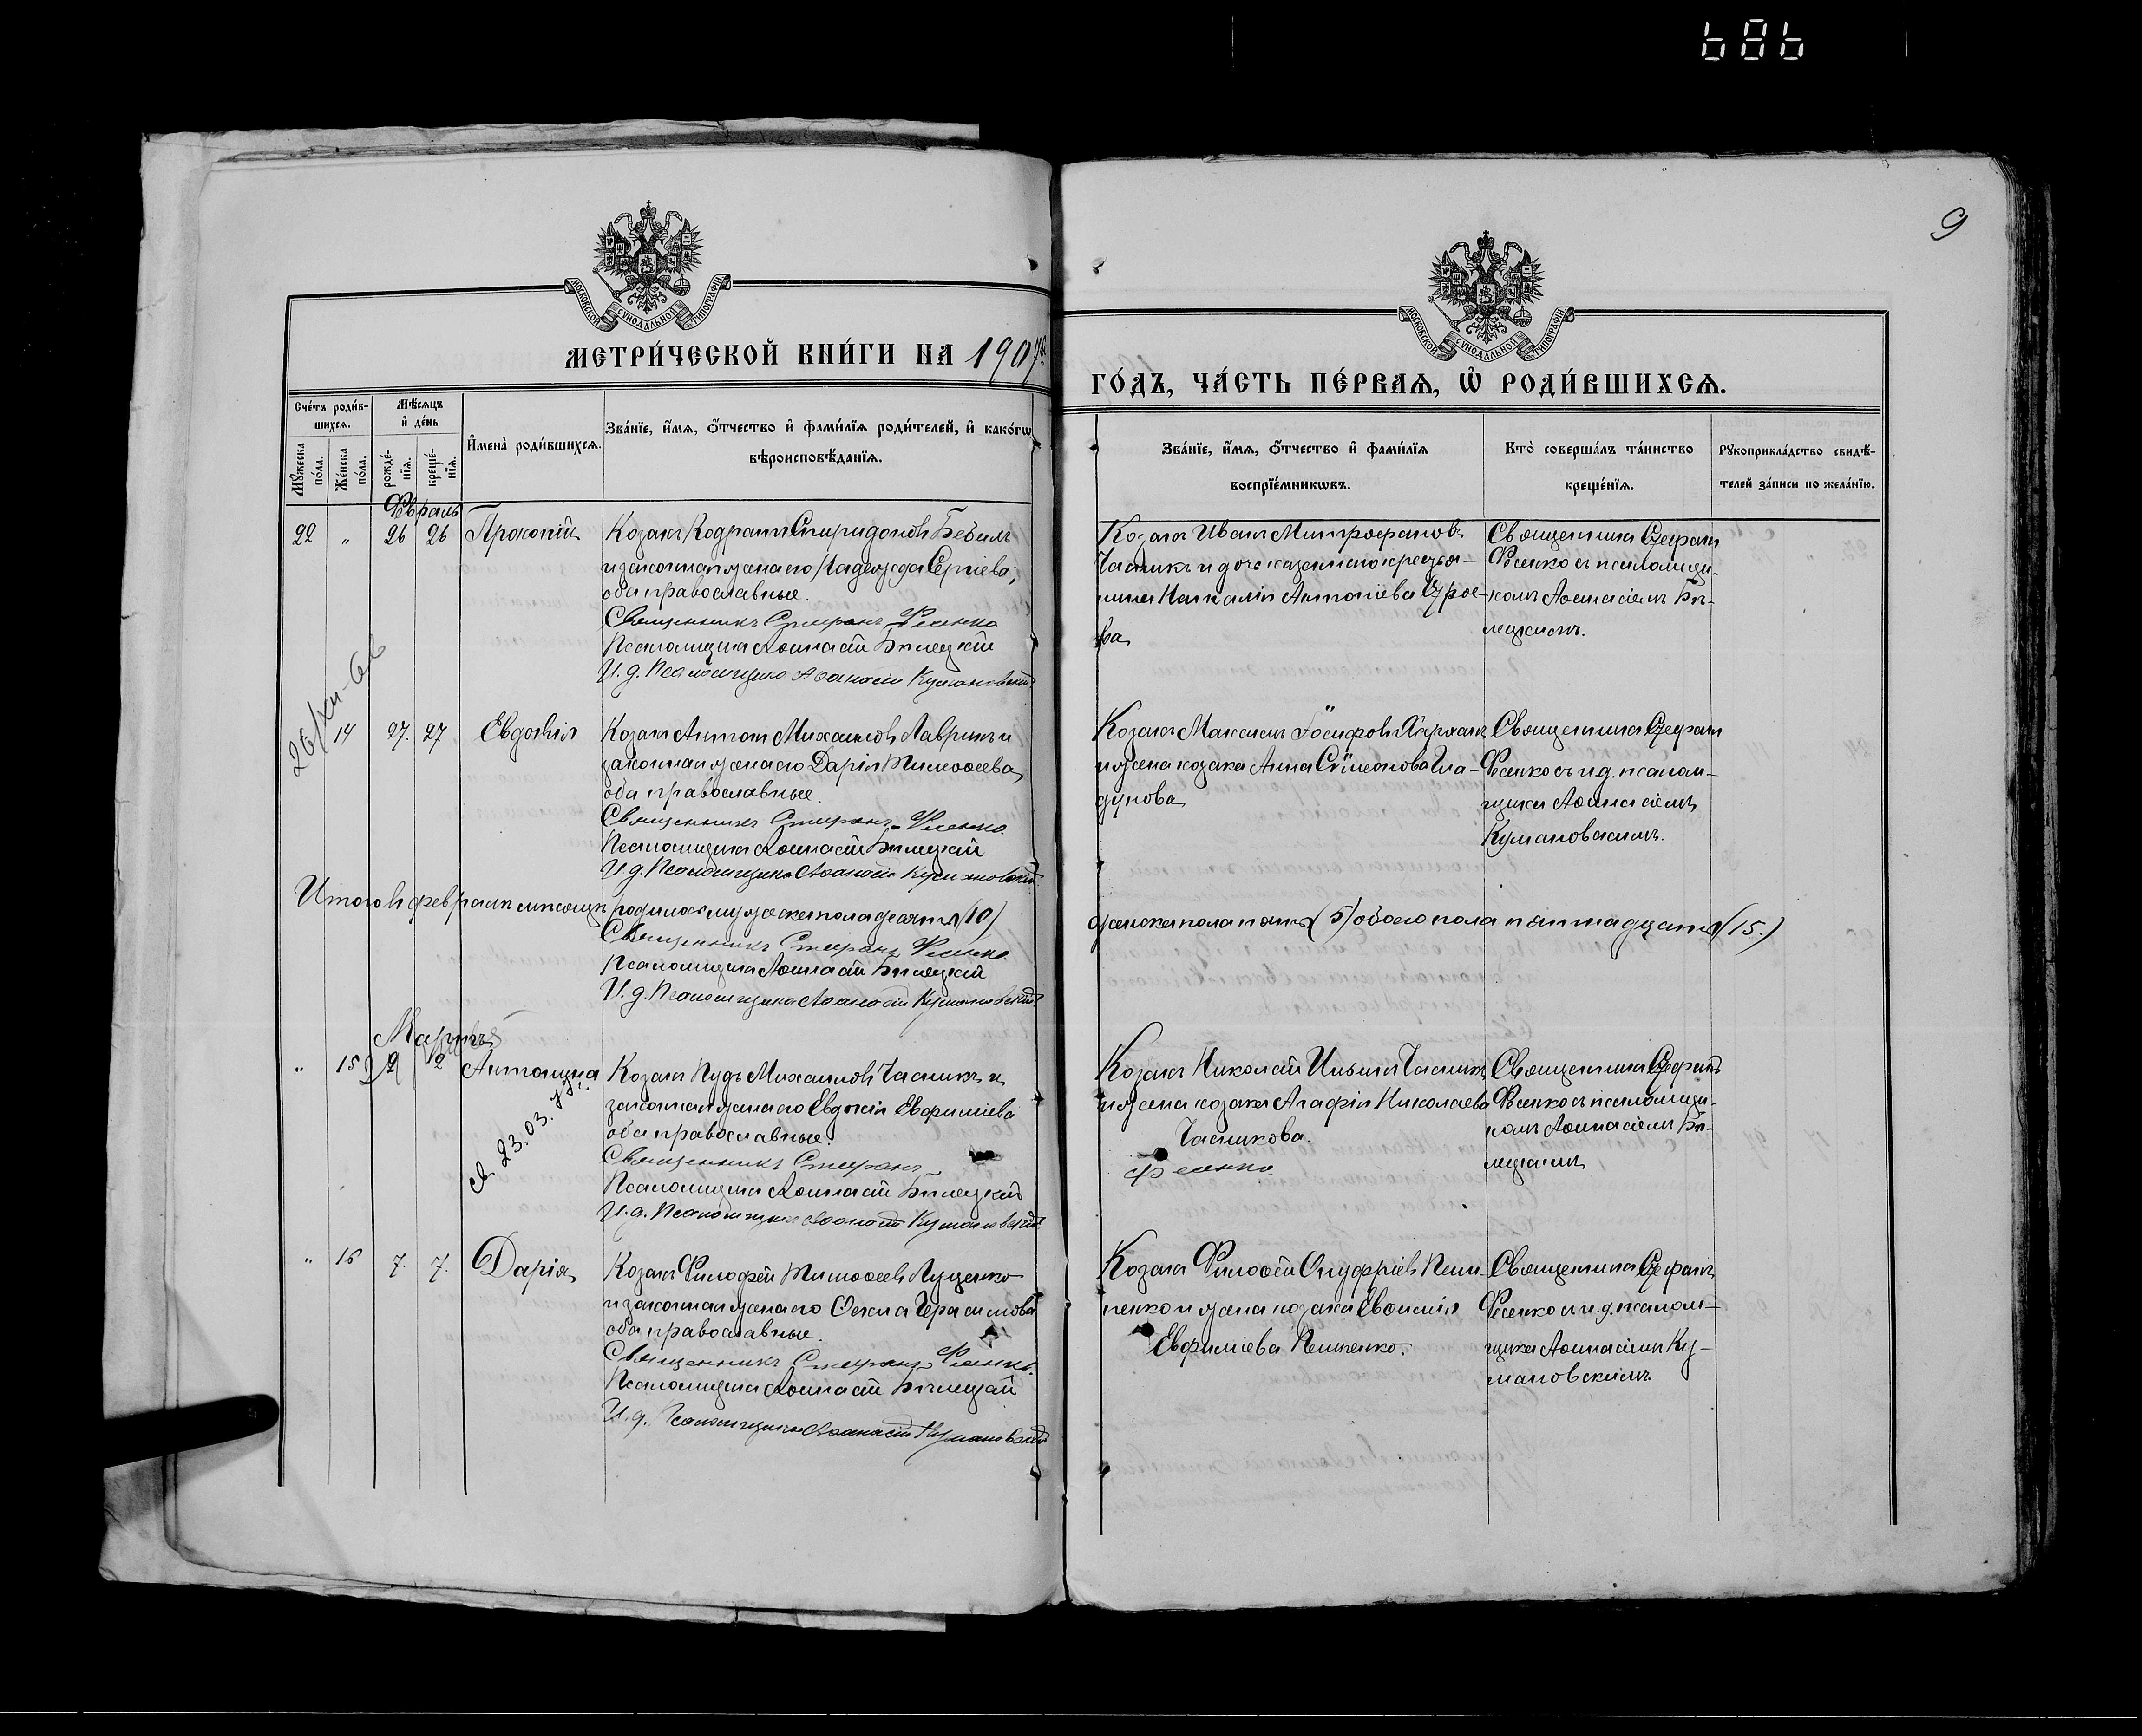 686
9
МОСКОВСКОЙ СУНОДАЛЬНОЙ ТИПОГРАФІИ
МОСКОВСКОЙ СУНОДАЛЬНОЙ ТИПОГРАФІИ
МЕТРИ́ЧЕСКОЙ КНИ́ГИ НА 1907
ГО́ДЪ, ЧА́СТЬ ПЕ́РВАѦ, Ѡ РОДИ́ВШИХСѦ.
Сче́тъ роди́вшихсѧ.
Мꙋ́жеска по́ла.
Же́нска по́ла.
Мѣ́сѧцъ и де́нь
рожде́нїѧ.
креще́нїѧ.
Имена̀ роди́вшихсѧ.
Зва́нїе, и́мѧ, ѻ́тчество и фами́лїѧ роди́телей, и како́гѡ
вѣроисповѣ́данїѧ.
Зва́нїе, и́мѧ, ѻ́тчество и фами́лїѧ
воспрїе́мникѡвъ.
Кто̀ соверша́лъ та́инство
креще́нїѧ.
Рꙋкоприкла́дство свидѣ́-
телей за́писи по жела́нїю.
Февраль
22 " 26 26 Прокопій
Козакъ Кодратъ Спиридоновъ
и законная жена его Надежда Сергіева,
оба православные.
Священникъ Стефанъ Фесенко
Псаломщикъ Аѳанасій Билецкій
И. д. Псаломщика Аѳанасій Кумановскій
Козакъ Иванъ Митрофановъ
Часникъ и дочь казеннаго крестья-
нина Наталія Антоніева
ва
Священникъ Стефанъ
Фесенко съ псаломщи-
комъ Аѳанасіемъ Би-
лецкимъ.
14 27. 27 Евдокія
Козакъ Антонъ Михаиловъ Лавринъ и
законная жена его Дарія Тимоѳеева,
оба православные.
Священникъ Стефанъ Фесенко.
Псаломщикъ Аѳанасій Билецкій
И. д. Псаломщика Аѳанасій Кумановскій
Козакъ Максимъ Іосифовъ
и жена козака Анна Сѵмеонова Гла-
дунова
Священникъ Стефанъ
Фесенко съ и. д. псалом-
щика Аѳанасіемъ
Кумановскимъ.
Итого въ февралѣ мѣсяцѣ родилось мужеска пола десять (10)
женска пола пять (5) обоего пола пятнадцать (15.)
Священникъ Стефанъ Фесенко.
Псаломщикъ Аѳанасій Билецкій
И. д. Псаломщика Аѳанасій Кумановскій
Мартъ
" 15 2 2 Антонина
св. 23.03.
Козакъ Пудъ Михаиловъ Часникъ и
законная жена его Евдокія Евфиміева
оба православные.
Священникъ Стефанъ
Псаломщикъ Аѳанасій Билецкій
И. д. Псаломщика Аѳанасій Кумановскій
Козакъ Николай Ильинъ Часникъ
и жена козака Агафія Николаева
Часникова.
Фесенко
Священникъ Стефанъ
Фесенко съ псаломщи-
комъ Аѳанасіемъ Би-
лецкимъ
" 16 7. 7. Дарія
Козакъ Филофей Тимоѳеевъ Луценко
и законная жена его Ѳекла Герасимова
оба православные.
Священникъ Стефанъ Фесенко.
Псаломщикъ Аѳанасій Билецкій
И. д. Псаломщика Аѳанасій Кумановскій
Козакъ Филоѳей Онуфріевъ Пели-
пенко и жена козака Евѳимія
Евфиміева Пелипенко.
Священникъ Стефанъ
Фесенко съ и. д. псалом-
щика Аѳанасіемъ Ку-
мановскимъ.